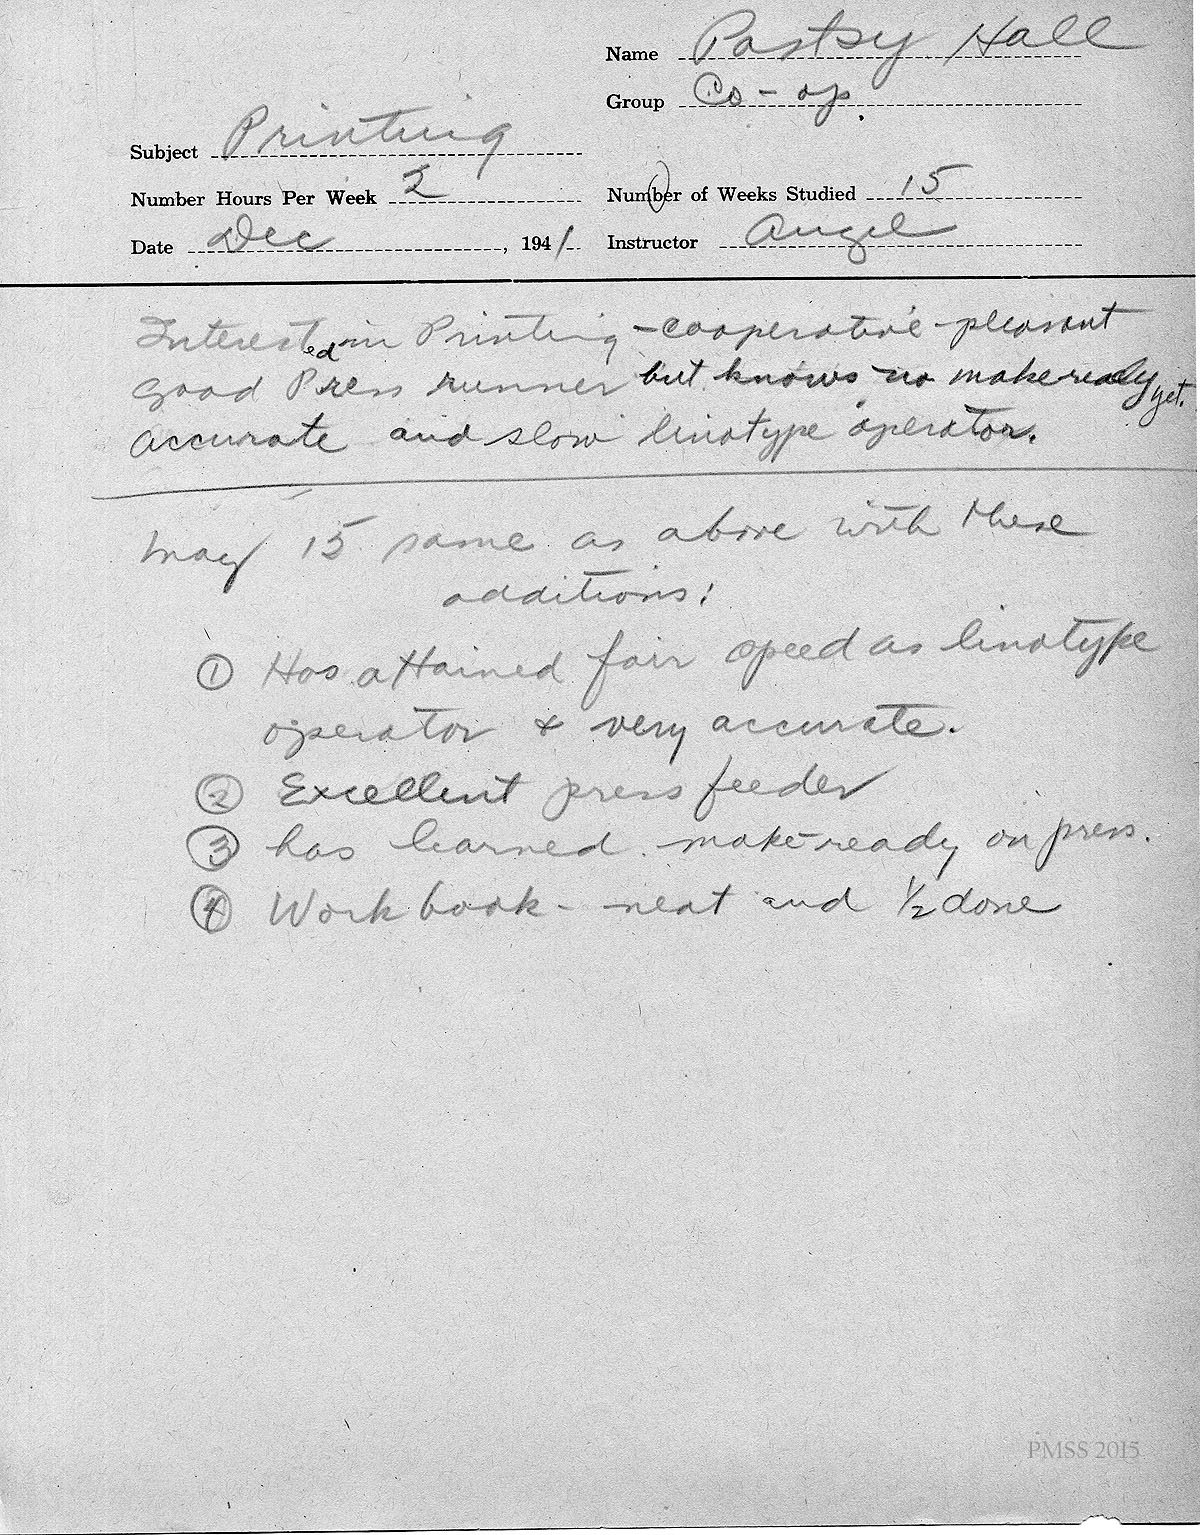 Name Patsy Hall
Group Co-op.
Subject Printing
Number Hours Per Week 2
Number of Weeks Studied 15
Date Dec, 1941
Instructor Angel
Interested in Printing - cooperative - pleasant
Good Press runner but knows no makeready yet.
accurate and slow linotype operator.
May 15 same as above with these
additions:
① Has attained fair speed as linotype
operator & very accurate.
② Excellent press feeder
③ has learned make-ready on press.
④ Work book - neat and ½ done
PMSS 2015